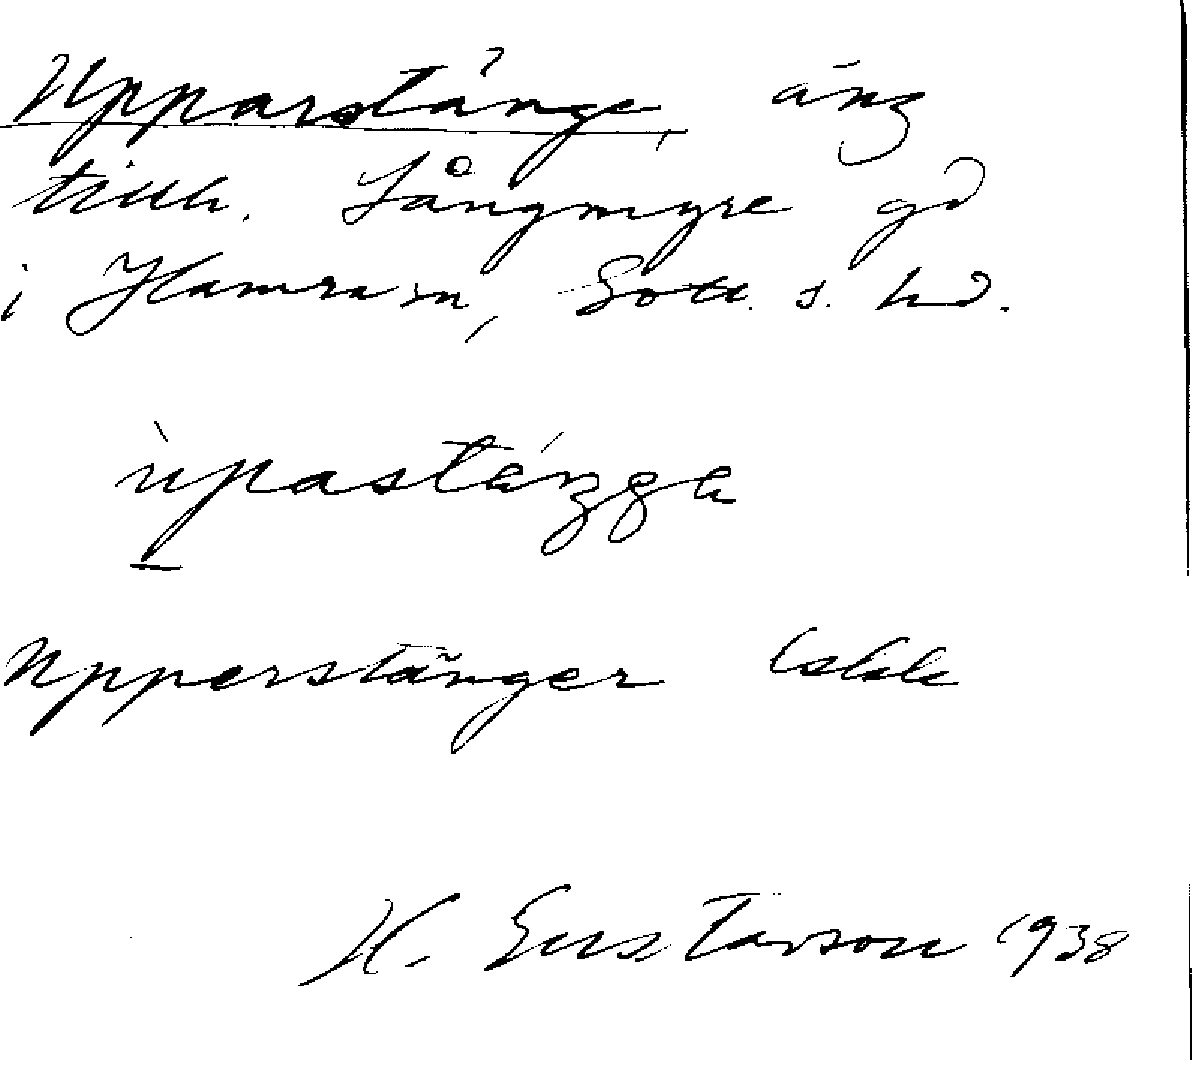 Upparstänge, äng
tillh. Långmyre gd
i Hamra sn, Gotl. s. hd.
ùpastáŋga
Upperstänger
H. Gustavson 1938